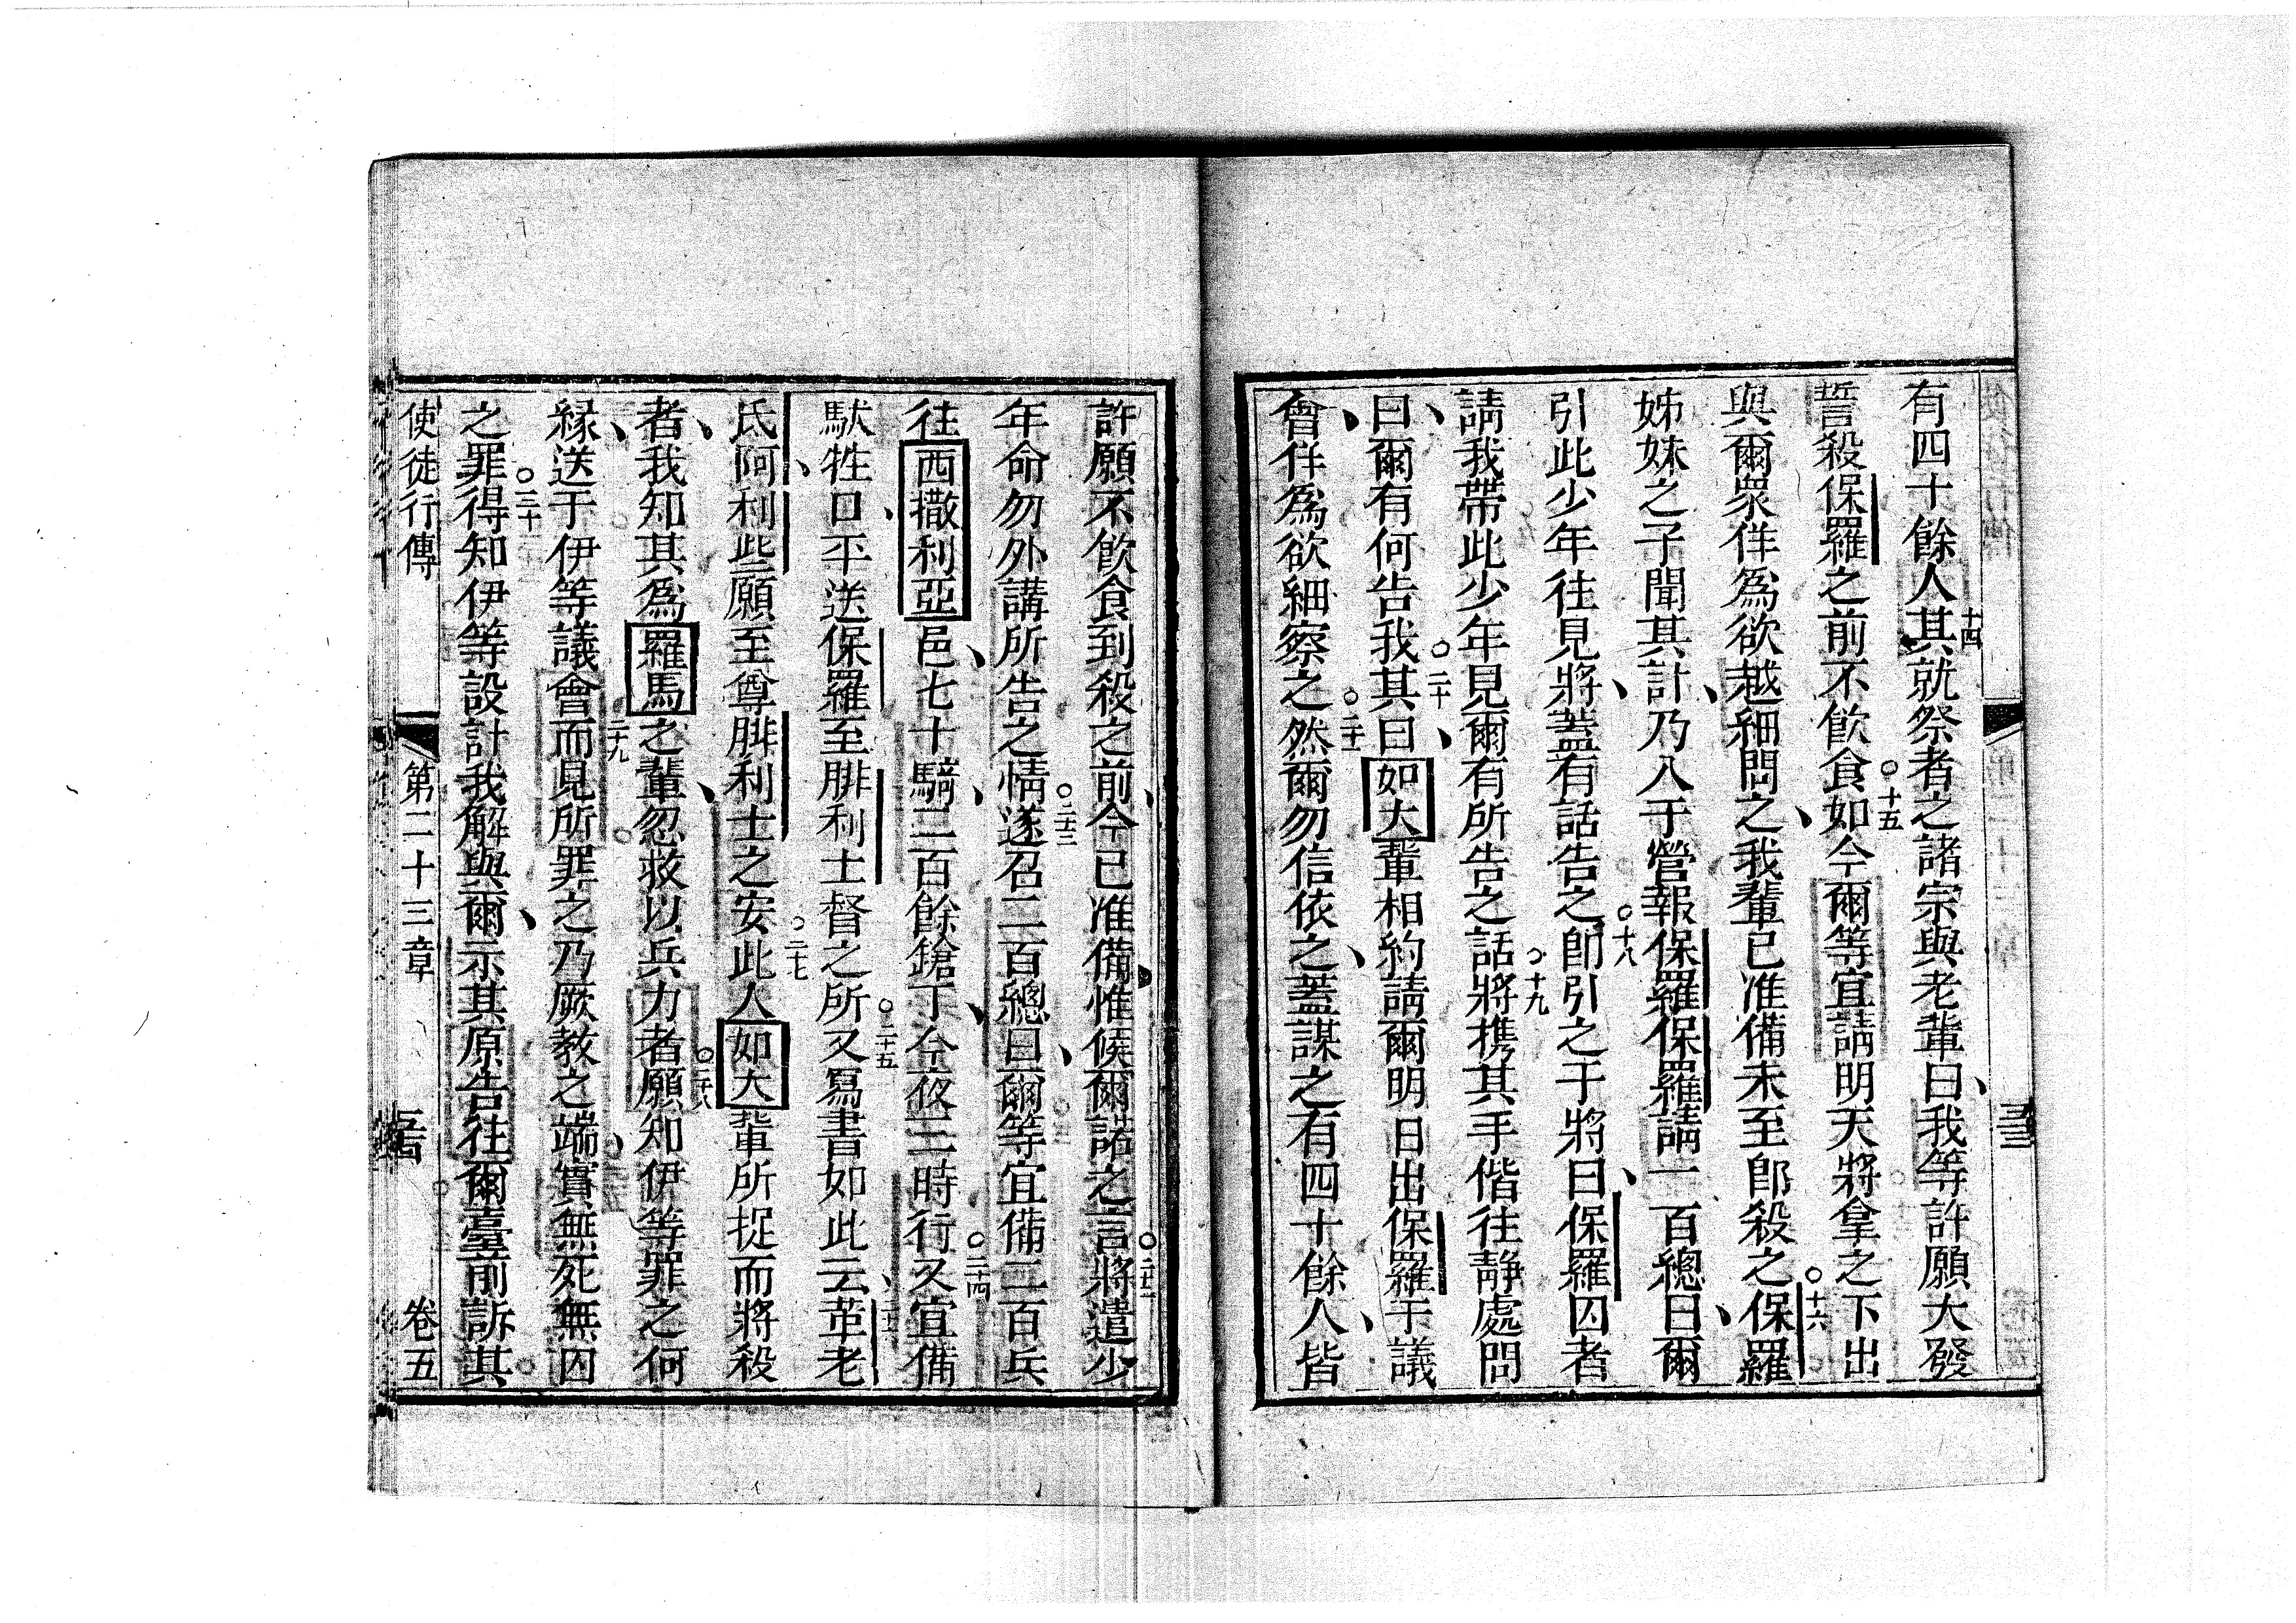 有四十餘人其就祭者之諸宗與老輩曰我等許願大發
十四
誓殺保羅之前不飲食如今爾等宜請明天將拿之下出
○十五
與爾眾佯為欲越細問之我輩已准備未至即殺之保羅
○十六
姊妹之子聞其計乃入于營報保羅保羅請一百總曰爾
引此少年往見將蓋有話告之即引之于將曰保羅囚者
○十八
請我帶此少年見爾有所告之話將携其手偕往靜處問
○十九
曰爾有何告我其曰如大輩相約請爾明日出保羅于議
○二十
會佯為欲細察之然爾勿信依之蓋謀之有四十餘人皆
○二十一
許願不飲食到殺之前今已准備惟候爾諾之言將遣少
○二十二
年命勿外講所告之情遂召二百總曰爾等宜備二百兵
○二十三
往西撒利亞邑七十騎二百餘鎗丁今夜三時行又宜備
○二十四
馱牲口平送保羅至腓利士督之所又寫書如此云革老
○二十五
氐阿利些願至尊腓利士之安此人如大輩所捉而將殺
○二十七
者我知其為羅馬之輩忽救以兵力者願知伊等罪之何
○二十八
緣送于伊等議會而見所罪之乃厥教之端實無死無囚
二十九
之罪得知伊等設計我解與爾示其原告往爾臺前訴其
○三十
使徒行傳 第二十三章 卷五